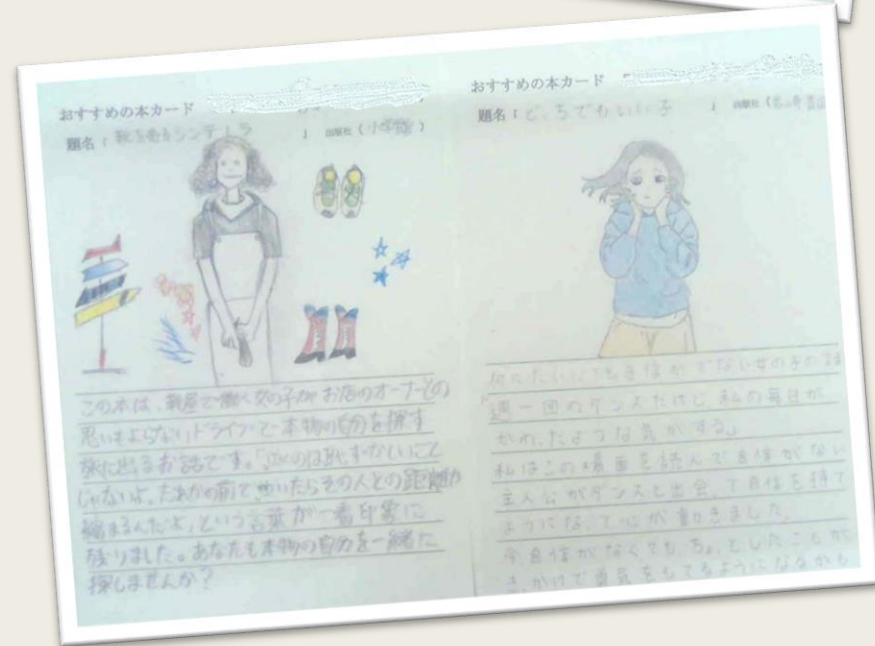 おすすめの本カード
題名「靴を売るシンデレラ 」 出版社（小学館）
この本は、靴屋で働く女の子が お店のオーナーとの
思いもよらないドライブで本物の自分を探す
旅に出るお話です。「泣くのは恥ずかしいこと
じゃないよ。だれかの前で泣いたらその人との距離が
縮まるんだよ」という言葉が一番印象に
残りました。あなたも本物の自分を一緒に
探しませんか？
おすすめの本カード
題名「どっちでもいい子 」 出版社（
自信がでない女の子の話
週一回のダンスだけど、私の毎日が
かわったような気がする」
私はこの場面を読んで自信がない
主人公がダンスと出会って自信を持て
ようになって心が動きました。
今、自信がなくても、ちょっとしたことが
きっかけで勇気をもてるようになるかも